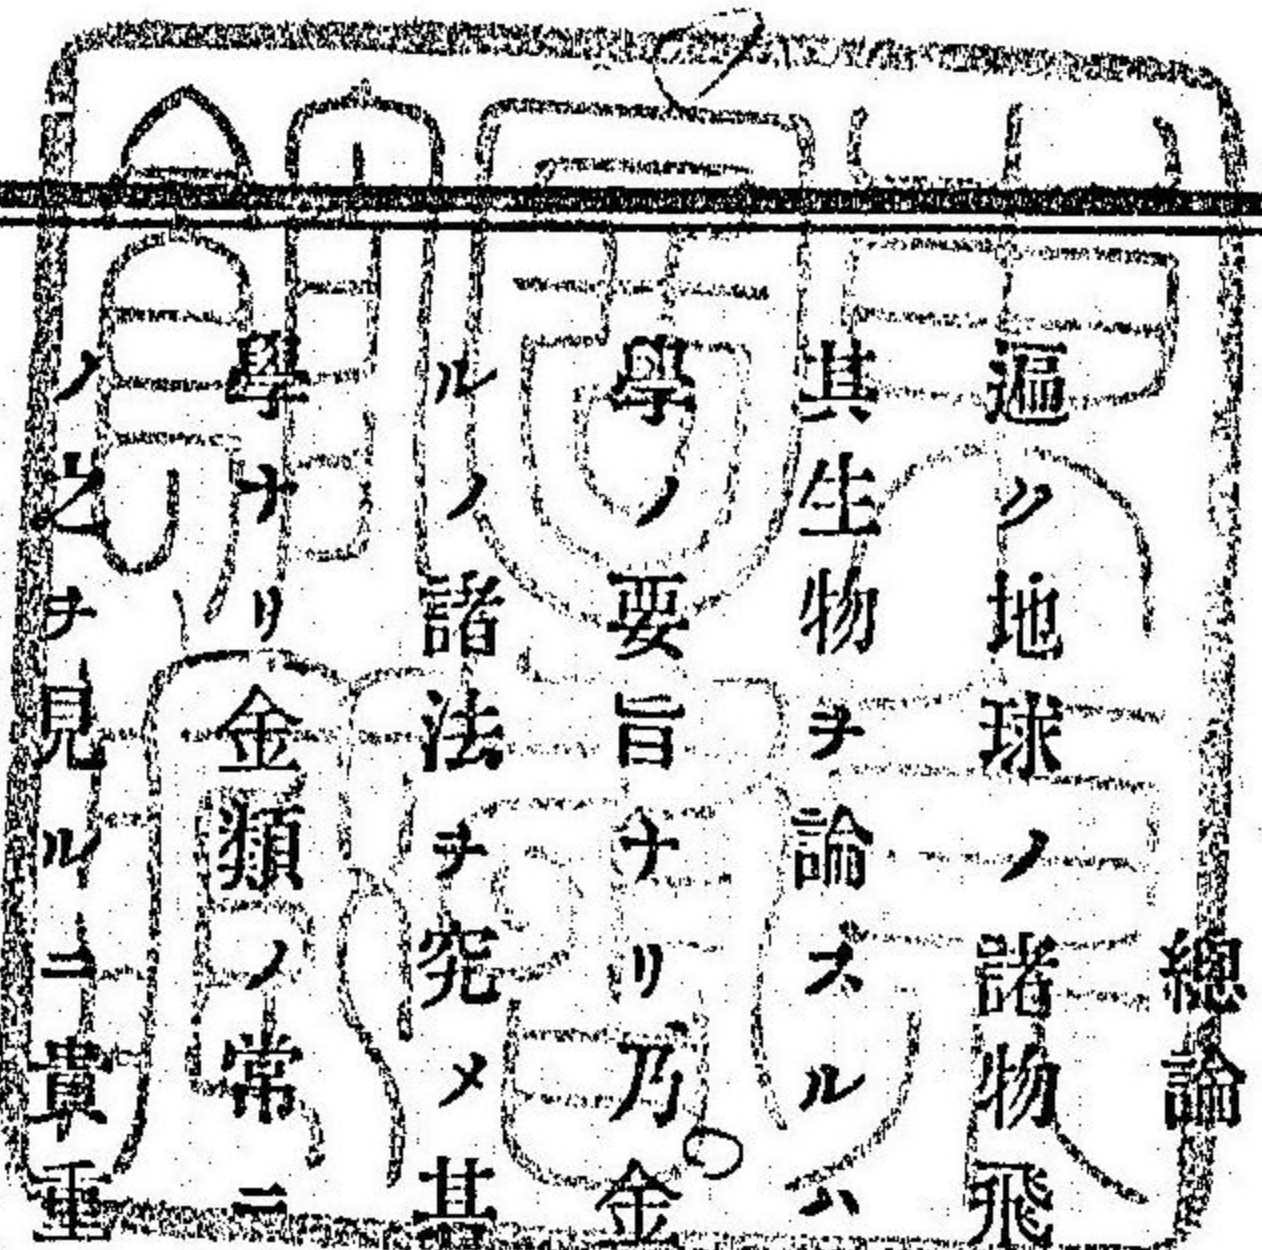 總論
遍ク地球ノ諸物飛
其生物ヲ論スルハ
學ノ要旨ナリ乃金
ルノ諸法ヲ究メ其
學ナリ金類ノ常ニ
ノ之ヲ見ルニ貴重